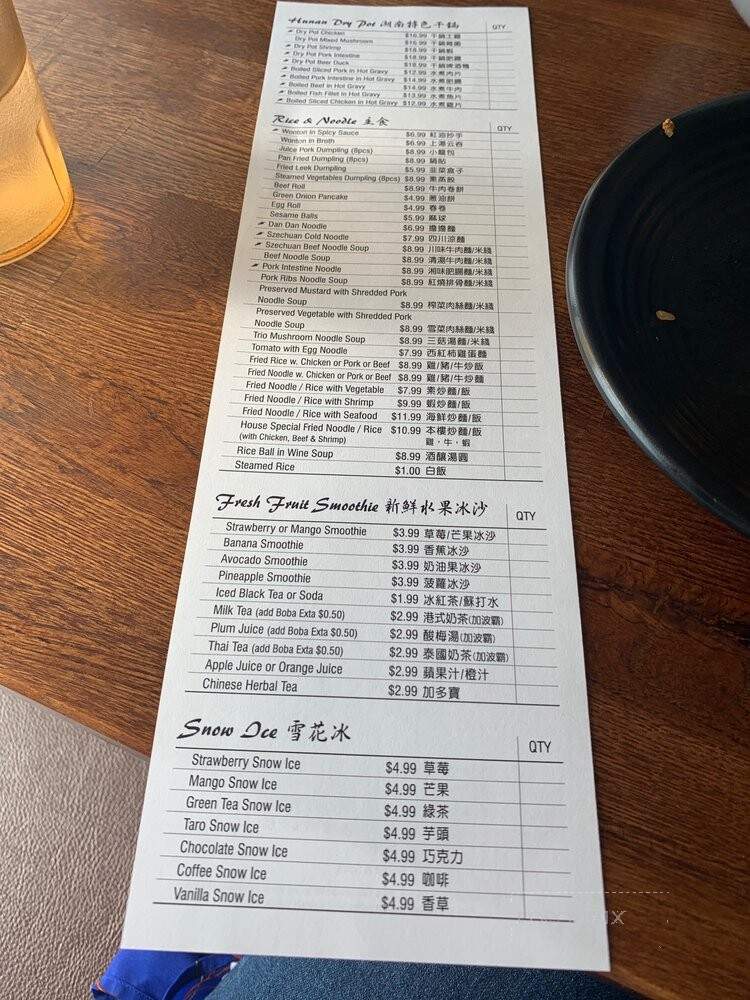 Hunan Dry Pot 湖南特色干鍋 QTY
Dry Pot Chicken $16.99 干鍋土雞
Dry Pot Mixed Mushroom $16.99 干鍋雜菌
Dry Pot Shrimp $18.99 干鍋蝦
Dry Pot Pork Intestine $18.99 干鍋肥腸
Dry Pot Beer Duck $18.99 干鍋啤酒鴨
Boiled Sliced Pork in Hot Gravy $12.99 水煮肉片
Boiled Pork Intestine in Hot Gravy $14.99 水煮肥腸
Boiled Beef in Hot Gravy $14.99 水煮牛肉
Boiled Fish Fillet in Hot Gravy $13.99 水煮魚片
Boiled Sliced Chicken in Hot Gravy $12.99 水煮雞片
Rice & Noodle 主食 QTY
Wonton in Spicy Sauce $6.99 紅油抄手
Wonton in Broth $6.99 上湯云吞
Juice Pork Dumpling (8pcs) $8.99 小籠包
Pan Fried Dumpling (8pcs) $8.99 鍋貼
Fried Leek Dumpling $5.99 韭菜盒子
Steamed Vegetables Dumpling (8pcs) $8.99 素蒸餃
Beef Roll $8.99 牛肉卷餅
Green Onion Pancake $4.99 蔥油餅
Egg Roll $4.99 春卷
Sesame Balls $5.99 麻球
Dan Dan Noodle $6.99 擔擔麵
Szechuan Cold Noodle $7.99 四川涼麵
Szechuan Beef Noodle Soup $8.99 川味牛肉麵/米綫
Beef Noodle Soup $8.99 清湯牛肉麵/米綫
Pork Intestine Noodle $8.99 湘味肥腸麵/米綫
Pork Ribs Noodle Soup $8.99 紅燒排骨麵/米綫
Preserved Mustard with Shredded Pork
Noodle Soup $8.99 榨菜肉絲麵/米綫
Preserved Vegetable with Shredded Pork
Noodle Soup $8.99 雪菜肉絲麵/米綫
Trio Mushroom Noodle Soup $8.99 三菇湯麵/米綫
Tomato with Egg Noodle $7.99 西紅柿雞蛋麵
Fried Rice w. Chicken or Pork or Beef $8.99 雞/豬/牛炒飯
Fried Noodle w. Chicken or Pork or Beef $8.99 雞/豬/牛炒麵
Fried Noodle / Rice with Vegetable $7.99 素炒麵/飯
Fried Noodle / Rice with Shrimp $9.99 蝦炒麵/飯
Fried Noodle / Rice with Seafood $11.99 海鮮炒麵/飯
House Special Fried Noodle / Rice $10.99 本樓炒麵/飯
(with Chicken, Beef & Shrimp) 雞·牛·蝦
Rice Ball in Wine Soup $8.99 酒釀湯圓
Steamed Rice $1.00 白飯
Fresh Fruit Smoothie 新鮮水果冰沙 QTY
Strawberry or Mango Smoothie $3.99 草莓/芒果冰沙
Banana Smoothie $3.99 香蕉冰沙
Avocado Smoothie $3.99 奶油果冰沙
Pineapple Smoothie $3.99 菠蘿冰沙
Iced Black Tea or Soda $1.99 冰紅茶/蘇打水
Milk Tea (add Boba Exta $0.50) $2.99 港式奶茶(加波霸)
Plum Juice (add Boba Exta $0.50) $2.99 酸梅湯(加波霸)
Thai Tea (add Boba Exta $0.50) $2.99 泰國奶茶(加波霸)
Apple Juice or Orange Juice $2.99 蘋果汁/橙汁
Chinese Herbal Tea $2.99 加多寶
Snow Ice 雪花冰 QTY
Strawberry Snow Ice $4.99 草莓
Mango Snow Ice $4.99 芒果
Green Tea Snow Ice $4.99 綠茶
Taro Snow Ice $4.99 芋頭
Chocolate Snow Ice $4.99 巧克力
Coffee Snow Ice $4.99 咖啡
Vanilla Snow Ice $4.99 香草